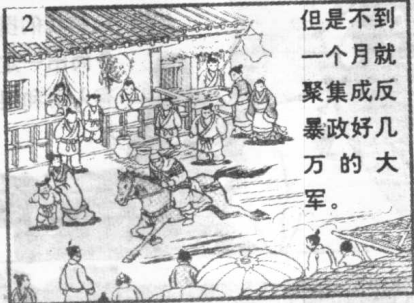 2
但是不到
一个月就
聚集成反
暴政好几
万的大
军。